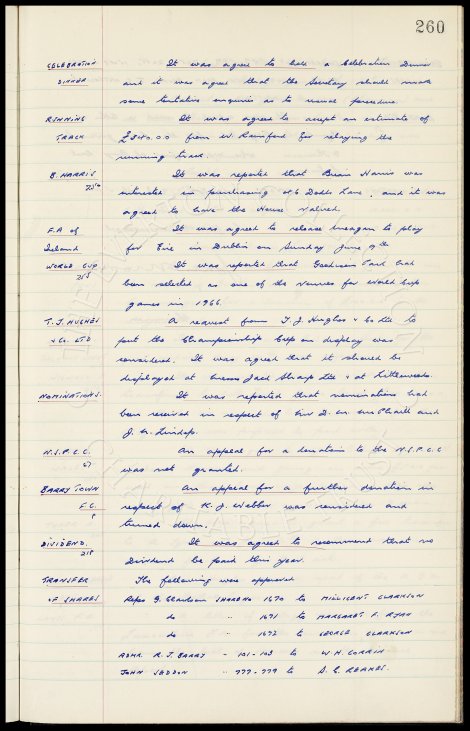 260
CELEBRATION It was agreed to hold a Celebration Dinner
DINNER and it was agreed that the Secretary should make
some tentative enquiries as to usual procedure.
RUNNING It was agreed to accept an estimate of
TRACK £540.00 from W. Rainford for relaying the
running track.
B. HARRIS It was reported that Brian Harris was
254 interested in purchasing 46 Dodds Lane, and it was
agreed to have the House Valued.
F.A of It was agreed to release Meagan to play
Ireland for Eire in Dublin on Sunday June 9th
WORLD CUP It was reported that Goodison Park had
255 been selected as one of the venues for World Cup
games in 1966.
T. J. HUGHES A request from T. J. Hughes & Co Ltd to
& Co. LTD put the Championship Cup on display was
considered. It was agreed that it should be
displayed at Messrs Jack Sharp Ltd & at Littlewoods.
NOMINATIONS. It was reported that nominations had
been received in respect of Mr D. M.
J. C. Lindop.
N.S.P.C.C. An appeal for a donation to the N.S.P.C.C
67 was not granted.
BARRY TOWN An appeal for a further donation in
F.C. respect of K. J. Webber was considered and
turned down.
DIVIDEND. It was agreed to recommend that no
218 Dividend be paid this year.
TRANSFER The following was approved
OF SHARES Reps G. Clarkson SHARE NO 1670 to MILLICENT CLARKSON
do " 1671 to MARGARET F. RYAN
do " 1672 to GEORGE CLARKSON
ADMR. R. J. BARRY - 101-103 to W. H. CORRIN
JOHN SEDDON " 777-779 to